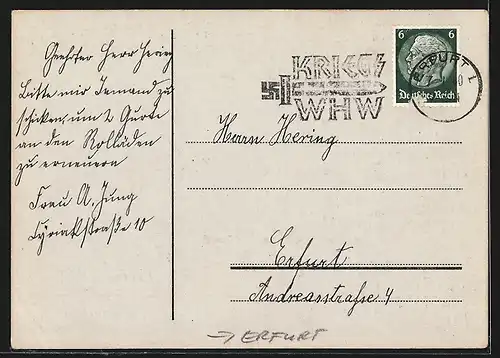 Geehrter Herr Hering
Bitte mir Jemand zu
schicken, um 2 Gurte
an den Rolläden
zu erneuern
Frau A. Jung
Cyriakstraße 10
KRIEGS
WHW
6 6
Deutsches Reich
ERFURT 1
Herrn Hering
Erfurt
Andreasstraße 4
→ ERFURT